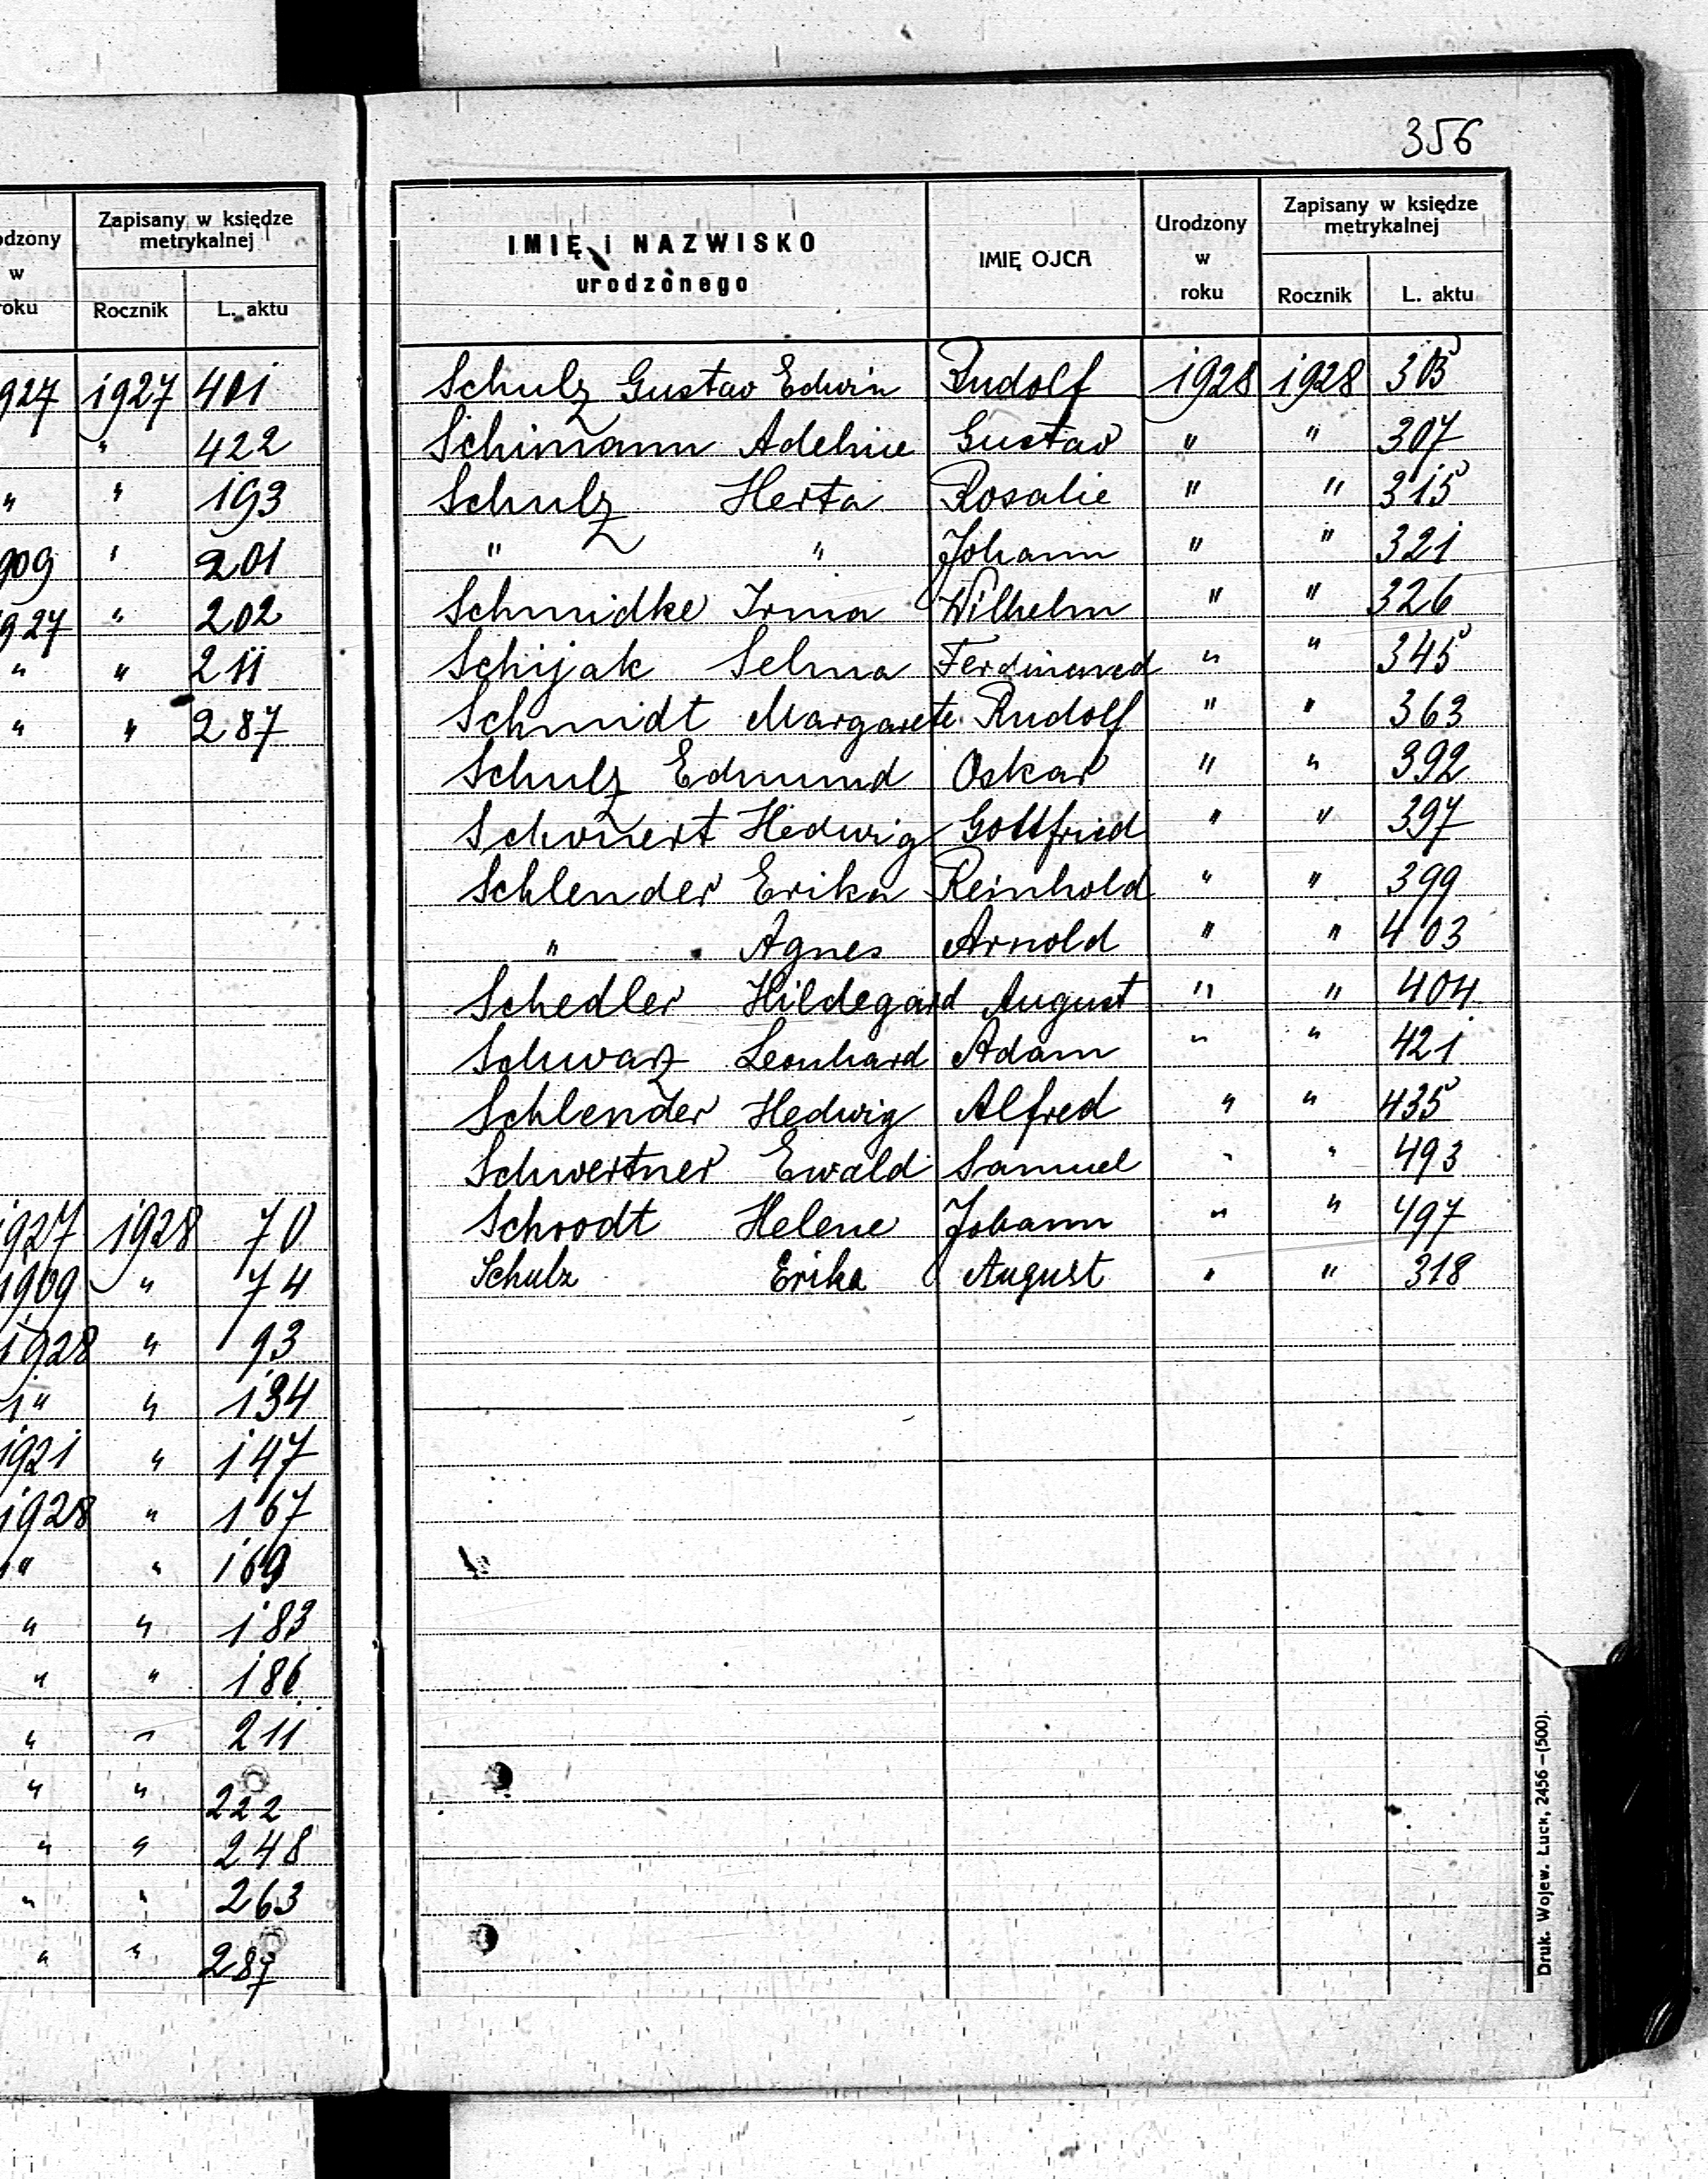 356
odzony w roku | Zapisany w księdze metrykalnej
Rocznik | L. aktu
927 | 1927 | 401
" | 422
" | " | 193
909 | " | 201
927 | " | 202
" | " | 211
" | " | 287
1927 | 1928 | 70
1909 | " | 74
1928 | " | 93
" | " | 134
1921 | " | 147
1928 | " | 167
" | " | 169
" | " | 183
" | " | 186
" | " | 211
" | " | 222
" | " | 248
" | " | 263
" | " | 287
IMIĘ i NAZWISKO urodzonego | IMIĘ OJCA | Urodzony w roku | Zapisany w księdze metrykalnej
Rocznik | L. aktu
Schulz Gustav Edwin | Rudolf | 1928 | 1928 | 305
Schimann Adeline | Gustav | " | " | 307
Schulz Herta | Rosalie | " | " | 315
" " | Johann | " | " | 321
Schmidke Irma | Wilhelm | " | " | 326
Schijak Selma | Ferdinand | " | " | 345
Schmidt Margarete | Rudolf | " | " | 363
Schulz Edmund | Oskar | " | " | 392
Schonert Hedwig | Gottfried | " | " | 397
Schlender Erika | Reinhold | " | " | 399
" Agnes | Arnold | " | " | 403
Schedler Hildegard | August | " | " | 404
Schwarz Leonhard | Adam | " | " | 421
Schlender Hedwig | Alfred | " | " | 435
Schwertner Ewald | Samuel | " | " | 493
Schrodt Helene | Johann | " | " | 497
Schulz Erika | August | " | " | 318
Druk. Wojew. Łuck, 2456—(500).